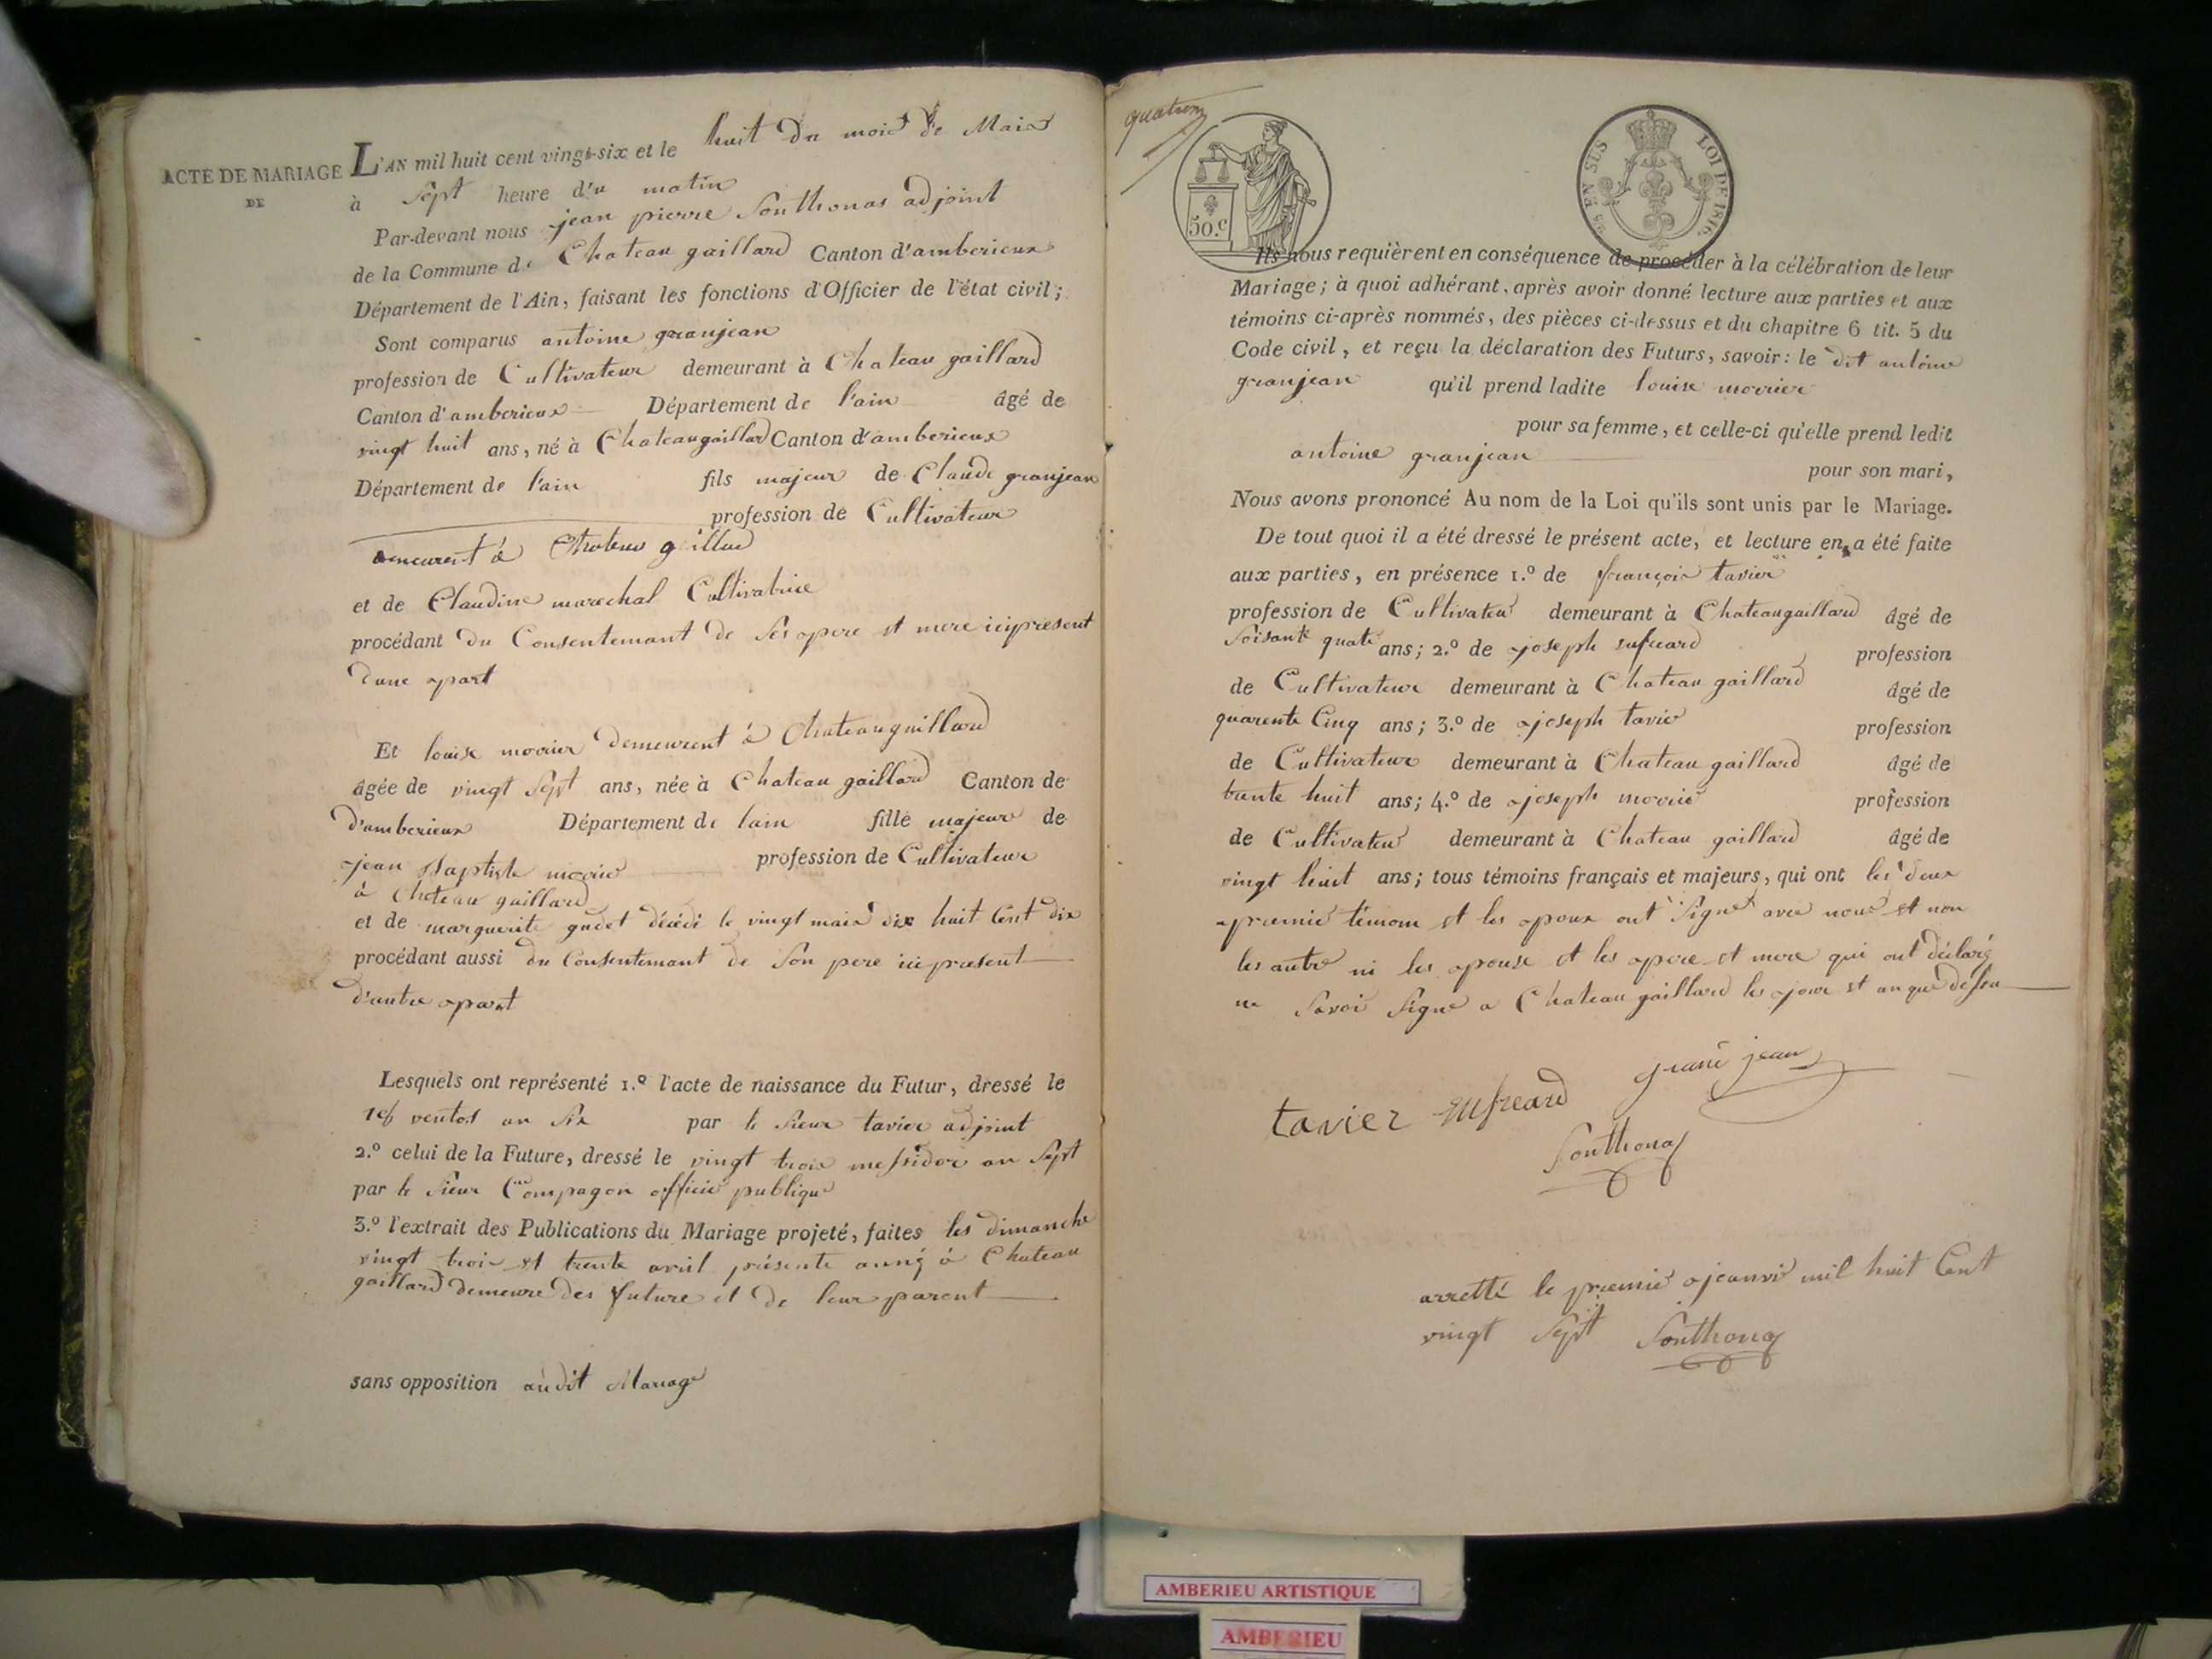 ACTE DE MARIAGE
DE
L'AN mil huit cent vingt-six et le huit du mois de Mais
à Sept heure d'u matin
Par-devant nous jean pierre Sonthonas adjoint
de la Commune de Chateau gaillard Canton d'amberieux
Département de l'Ain, faisant les fonctions d'Officier de l'état civil;
Sont comparus antoine granjean
profession de Cultivateur demeurant à Chateau gaillard
Canton d'amberieux Département de l'ain âgé de
vingt huit ans, né à Chateaugaillard Canton d'amberieux
Département de l'ain fils majeur de Claude granjean
profession de Cultivateur
demeurent à Chateau gaillard
et de Claudine marechal Cultivatrice
procédant du Consentemant de Ses pere et mere ici present
dune part
Et louise morrier demeurent à Chateaugaillard
âgée de vingt Sept ans, née à Chateau gaillard Canton de
d'amberieux Département de lain fille majeure de
jean Baptiste morrier profession de Cultivateur
à Chateau gaillard
et de marguerite gudet décédé le vingt mais dix huit Cent dix
procédant aussi du Consentemant de Son pere ici present
d'autre part
Lesquels ont représenté 1.º l'acte de naissance du Futur, dressé le
ventos an Six par le Sieur tavier adjoint
2.º celui de la Future, dressé le vingt trois messidor an Sept
par le Sieur Compagon officie publique
3.º l'extrait des Publications du Mariage projeté, faites les dimanche
vingt trois et trente avril présente anné à Chateau
gaillard demeure des future et de leur parent
sans opposition audit Mariage
50.c
EN SUS LOI DE 1816.
Ils nous requièrent en conséquence de procéder à la célébration de leur
Mariage; à quoi adhérant, après avoir donné lecture aux parties et aux
témoins ci-après nommés, des pièces ci-dessus et du chapitre 6 tit. 5 du
Code civil, et reçu la déclaration des Futurs, savoir: le dit antoine
granjean qu'il prend ladite louise morrier
pour sa femme, et celle-ci qu'elle prend ledit
antoine granjean pour son mari,
Nous avons prononcé Au nom de la Loi qu'ils sont unis par le Mariage.
De tout quoi il a été dressé le présent acte, et lecture en a été faite
aux parties, en présence 1.º de françois tavier
profession de Cultivateur demeurant à Chateaugaillard âgé de
Soisante quatre ans; 2.º de joseph sufreard profession
de Cultivateur demeurant à Chateau gaillard âgé de
quarente Cinq ans; 3.º de joseph tavier profession
de Cultivateur demeurant à Chateau gaillard âgé de
trente huit ans; 4.º de joseph morrier profession
de Cultivateur demeurant à Chateau gaillard âgé de
vingt huit ans; tous témoins français et majeurs, qui ont les deux
premié témoin et les epoux ont Signé avec nous et non
les autre ni les epouse et les pere et mere qui ont déclaré
ne Savoir Signe a Chateau gaillard les jour et an que dessu
tavier sufreard grand jean
Sonthonas
arretté le premié jeanvié mil huit Cent
vingt Sept Sonthonas
AMBERIEU ARTISTIQUE
AMBERIEU